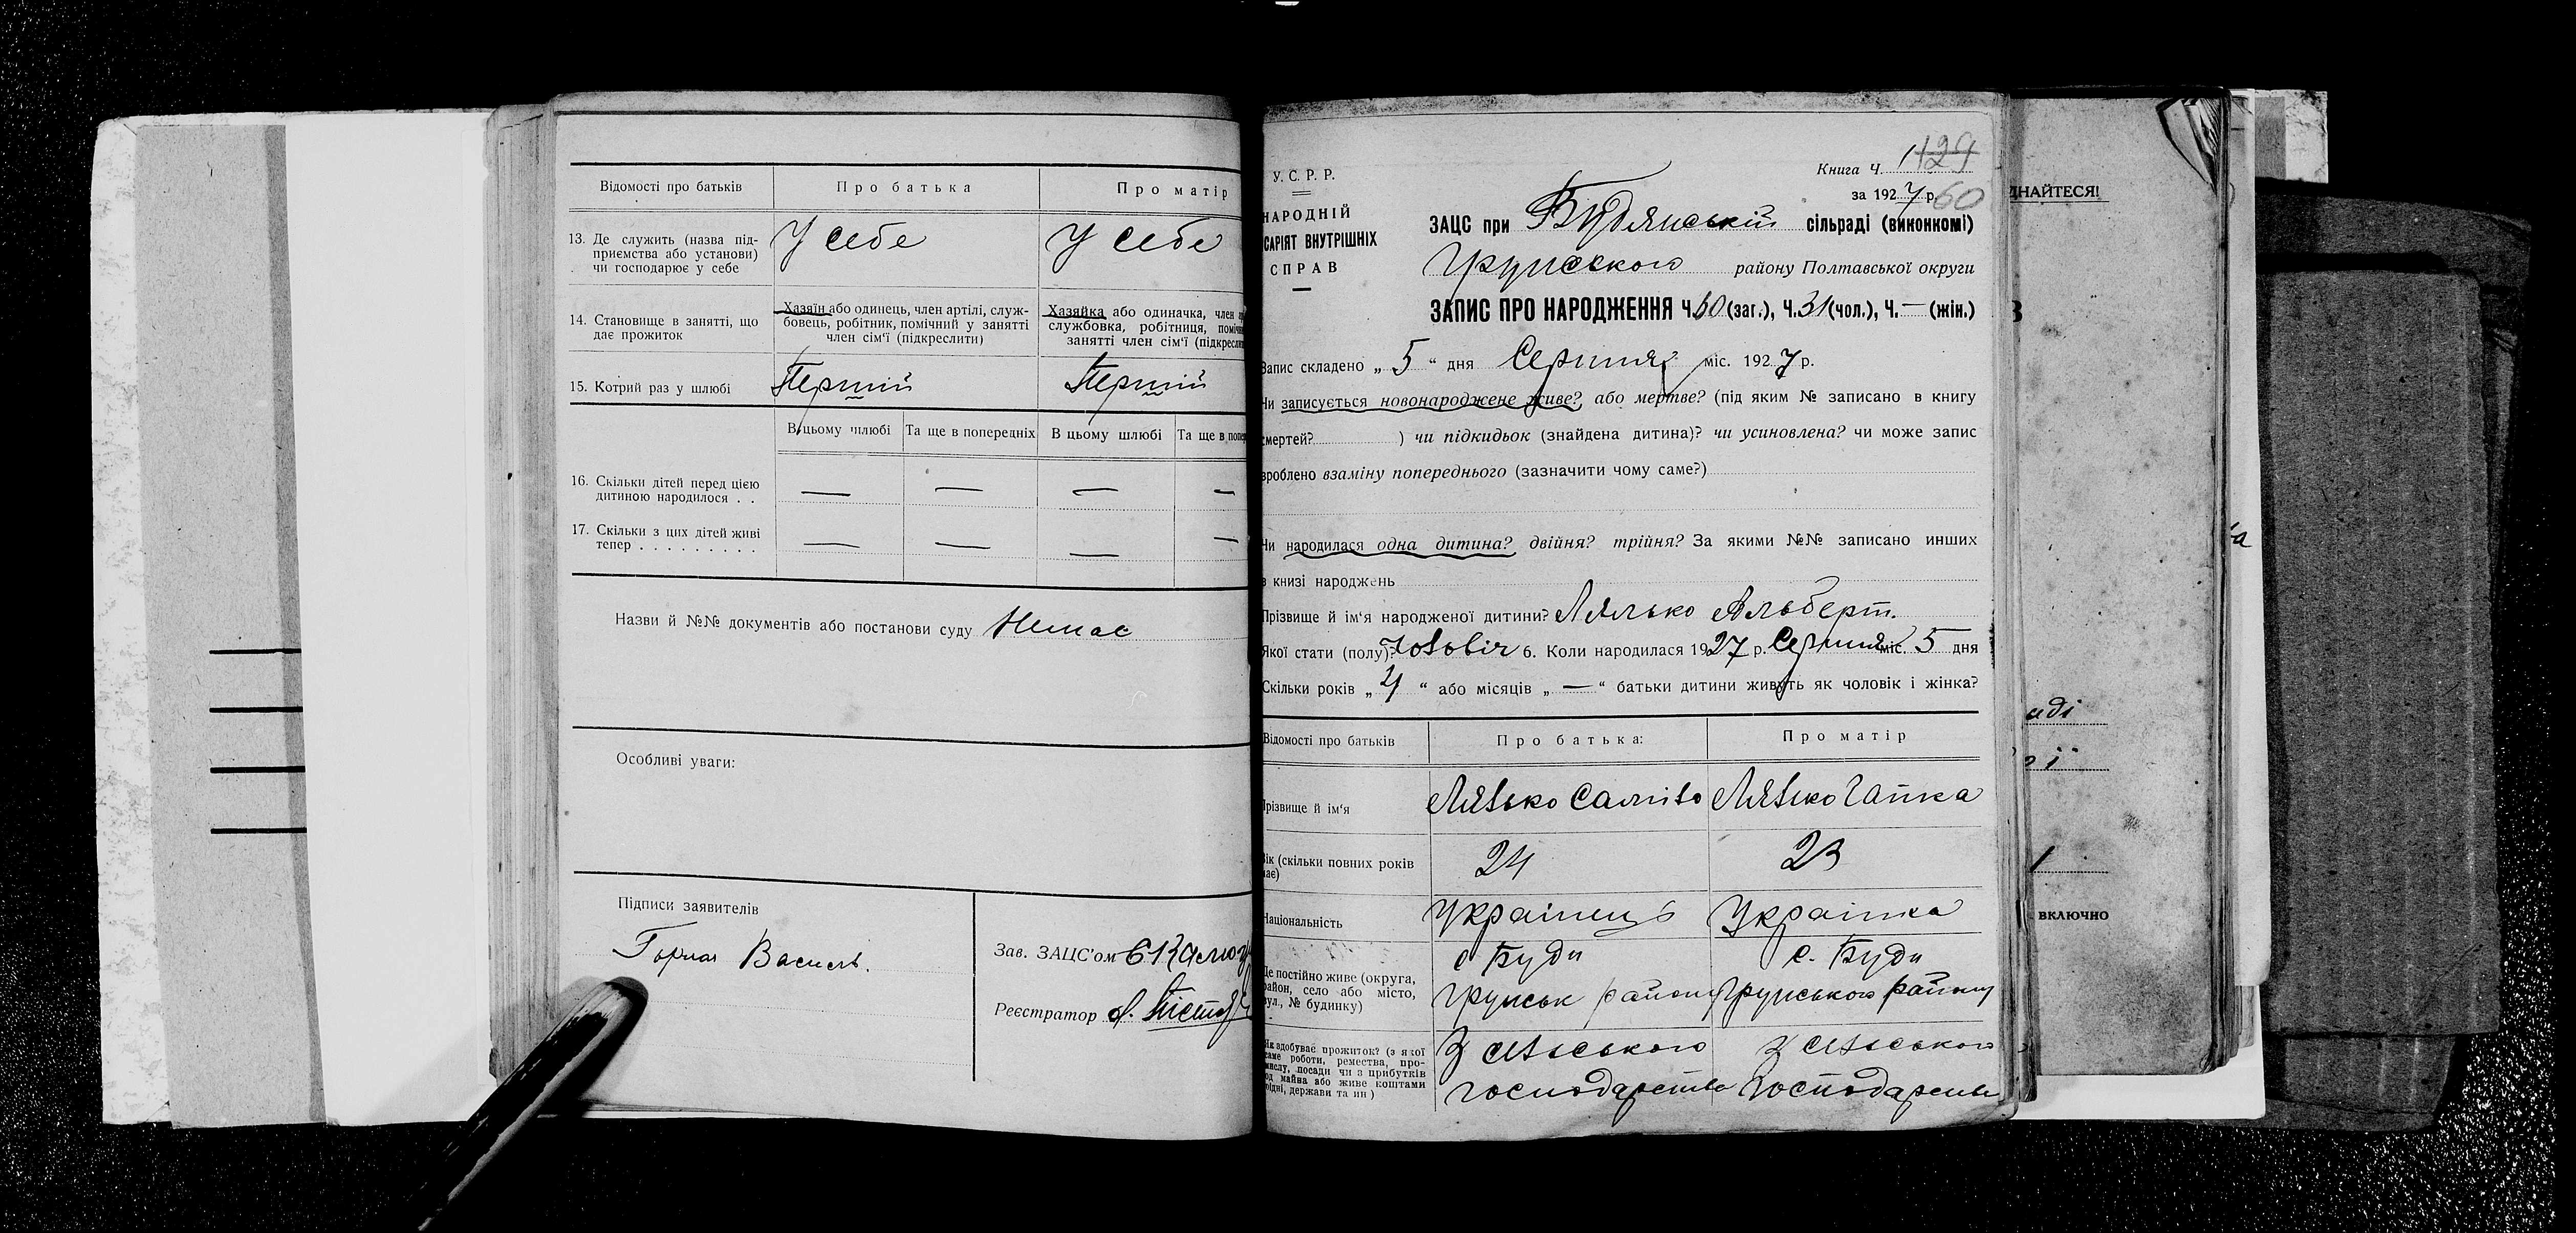 Відомості про батьків
Про батька
Про матір
13. Де служить (назва під-
приємства або установи)
чи господарює у себе
У себе
У себе
14. Становище в занятті, що
дає прожиток
Хазяїн або одинець, член артілі, служ-
бовець, робітник, помічний у занятті
член сім'ї (підкреслити)
Хазяйка або одиначка, член
службовка, робітниця,
занятті член сім'ї
15. Котрий раз у шлюбі
Перший
Перший
В цьому шлюбі
Та ще в попередніх
В цьому шлюбі
Та ще в
16. Скільки дітей перед цією
дитиною народилося . .
— — — —
17. Скільки з цих дітей живі
тепер . . . . . . . . .
— — — —
Назви й №№ документів або постанови суду Немає
Особливі уваги:
Підписи заявителів
Василь.
Зав. ЗАЦС'ом
Реєстратор
У.С.Р.Р.
НАРОДНІЙ
ВНУТРІШНІХ
СПРАВ
Книга Ч. 129
за 1927 р. 60
ЗАЦС при Будянській сільраді (виконкомі)
Грунського району Полтавської округи
ЗАПИС ПРО НАРОДЖЕННЯ Ч. 60 (заг.), Ч. 31 (чол.), Ч. — (жін.)
Запис складено „ 5 “ дня Серпня міс. 1927 р.
Чи записується новонароджене живе? або мертве? (під яким № записано в книгу
смертей? ) чи підкидьок (знайдена дитина)? чи усиновлена? чи може запис
зроблено взаміну попереднього (зазначити чому саме?)
Чи народилася одна дитина? двійня? трійня? За якими №№ записано инших
в книзі народжень
Прізвище й ім'я народженої дитини? Лялько Альберт.
Якої стати (полу)? Чоловіч 6. Коли народилася 1927 р. Серпня міс. 5 дня
Скільки років „ 4 “ або місяців „ — “ батьки дитини живуть як чоловік і жінка?
Відомості про батьків
Про батька:
Про матір
Прізвище й ім'я
Лялько
Лялько Гапка
Вік (скільки повних років
має)
24
23
Національність
Українець
Українка
Де постійно живе (округа,
район, село або місто,
вул., № будинку)
с Буди
Грунськ району
с. Буди
Грунського району
Як здобуває прожиток? (з якої
саме роботи, ремества, про-
мислу, посади чи з прибутків
од майна або живе коштами
рідні, держави та ин)
З сільського
господарства
З сільського
господарства
ДНАЙТЕСЯ!
аді
рії
включно